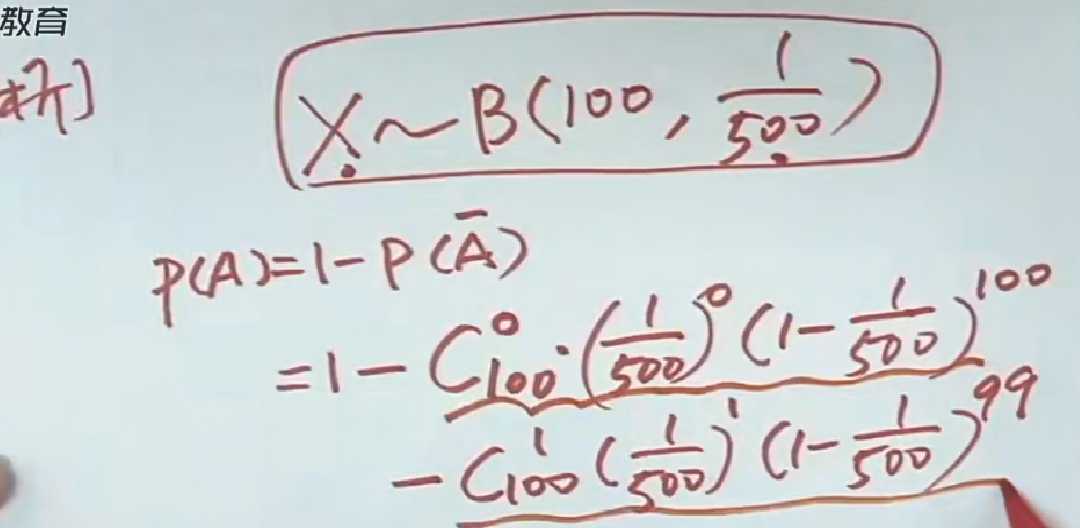 教育
析]
X ~ B(100, 1/500)
P(A)=1-P(Ā)
=1-C₁₀₀⁰·(1/500)⁰(1-1/500)¹⁰⁰
-C₁₀₀¹(1/500)¹(1-1/500)⁹⁹